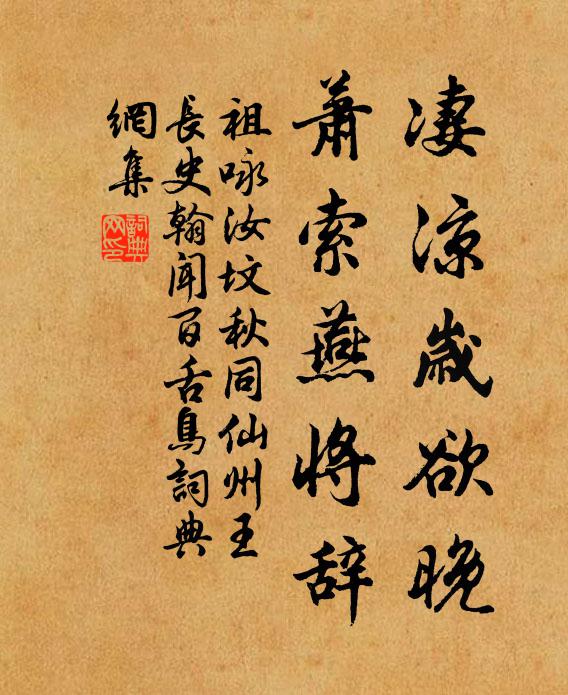 凄涼歲欲晚
蕭索燕將辞
祖咏汝坟秋同仙州王
長史翰聞百舌鳥詞典
網集
詞典
网印